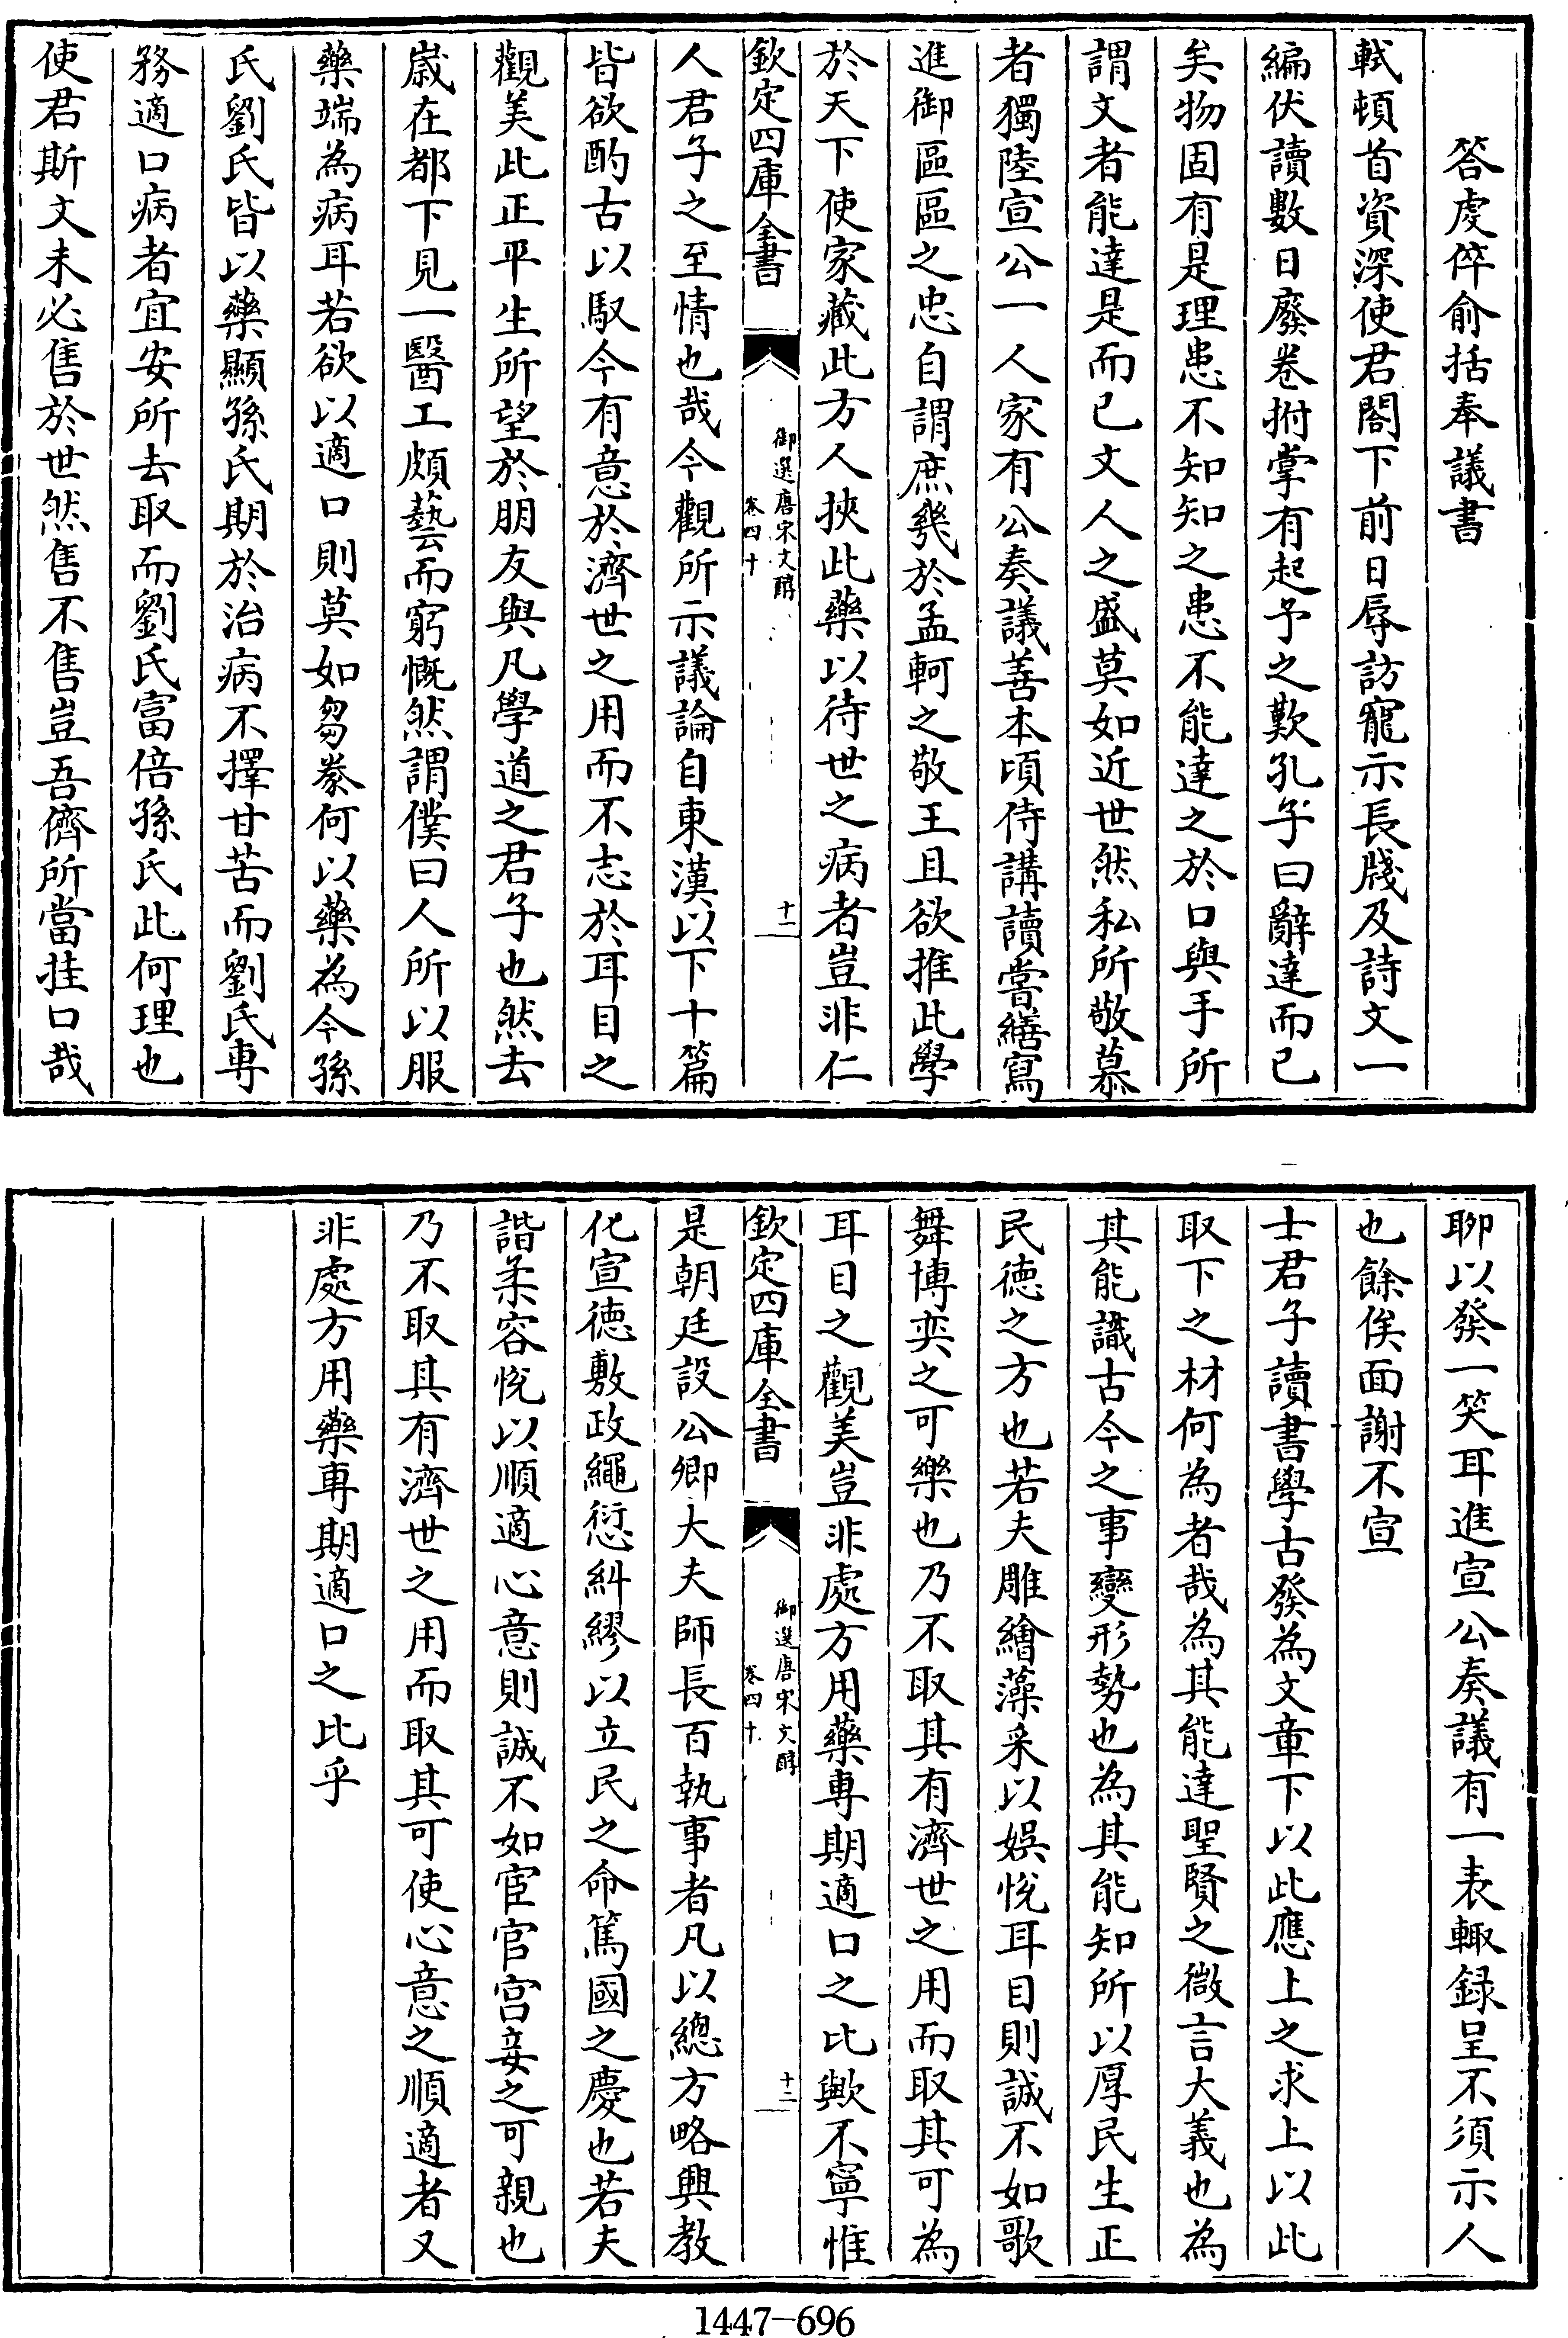 答䖏倅俞括奉議書
軾頓首資深使君閣下前日辱訪寵示長牋及詩文一
編伏讀數日廢卷拊掌有起予之歎孔子曰辭達而已
矣物固有是理患不知知之患不能達之於口與手所
謂文者能達是而已文人之盛莫如近世然私所敬慕
者獨陸宣公一人家有公奏議善本頃侍講讀嘗繕寫
進御區區之忠自謂庶幾於孟軻之敬王且欲推此學
於天下使家藏此方人挾此藥以待世之病者豈非仁
欽定四庫全書
御選唐宋文醇
卷四十
十一
人君子之至情也哉今觀所示議論自東漢以下十篇
皆欲酌古以馭今有意於濟世之用而不志於耳目之
觀美此正平生所望於朋友與凡學道之君子也然去
嵗在都下見一醫工頗藝而窮慨然謂僕曰人所以服
藥端為病耳若欲以適口則莫如芻豢何以藥為今孫
氏劉氏皆以藥顯孫氏期於治病不擇甘苦而劉氏専
務適口病者宜安所去取而劉氏富倍孫氏此何理也
使君斯文未必售於世然售不售豈吾儕所當挂口哉
聊以發一笑耳進宣公奏議有一表輙録呈不須示人
也餘俟面謝不宣
士君子讀書學古發為文章下以此應上之求上以此
取下之材何為者哉為其能達聖賢之微言大義也為
其能識古今之事變形勢也為其能知所以厚民生正
民德之方也若夫雕繪藻采以娯悅耳目則誠不如歌
舞博奕之可樂也乃不取其有濟世之用而取其可為
耳目之觀美豈非處方用藥専期適口之比歟不寧惟
欽定四庫全書
御選唐宋文醇
卷四十
十二
是朝廷設公卿大夫師長百執事者凡以總方略興教
化宣德敷政繩愆糾繆以立民之命篤國之慶也若夫
諧柔容悅以順適心意則誠不如宦官宫妾之可親也
乃不取其有濟世之用而取其可使心意之順適者又
非處方用藥専期適口之比乎
1447-696